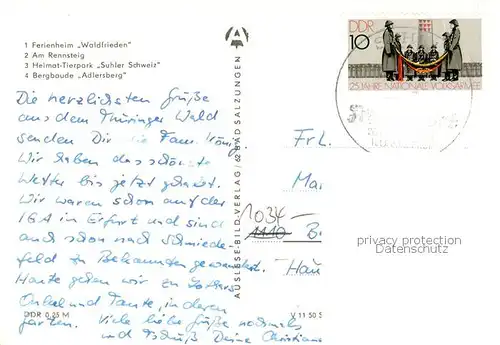 1 Ferienheim „Waldfrieden"
2 Am Rennsteig
3 Heimat-Tierpark „Suhler Schweiz"
4 Bergbaude „Adlersberg"
Die herzlichsten Grüße
aus dem Thüringer Wald
senden Dir die Fam. König
Wir haben das schönste
Wetter bis jetzt gehabt.
Wir waren schon auf der
IGA in Erfurt und sind
auch schon nach Schmiede
feld zu Bekannten gewandert.
Heute gehen wir zu
Onkel und Tante, in deren
Garten. Viele liebe Grüße nochmals
und Tschüß Deine Christiane
DDR 0,25 M
AUSLESE-BILD-VERLAG / 62 BAD SALZUNGEN
V 11 50
DDR
10
25 JAHRE NATIONALE VOLKSARMEE
Frl.
Ma
1034
1110 B
Hau
privacy protection
Datenschutz